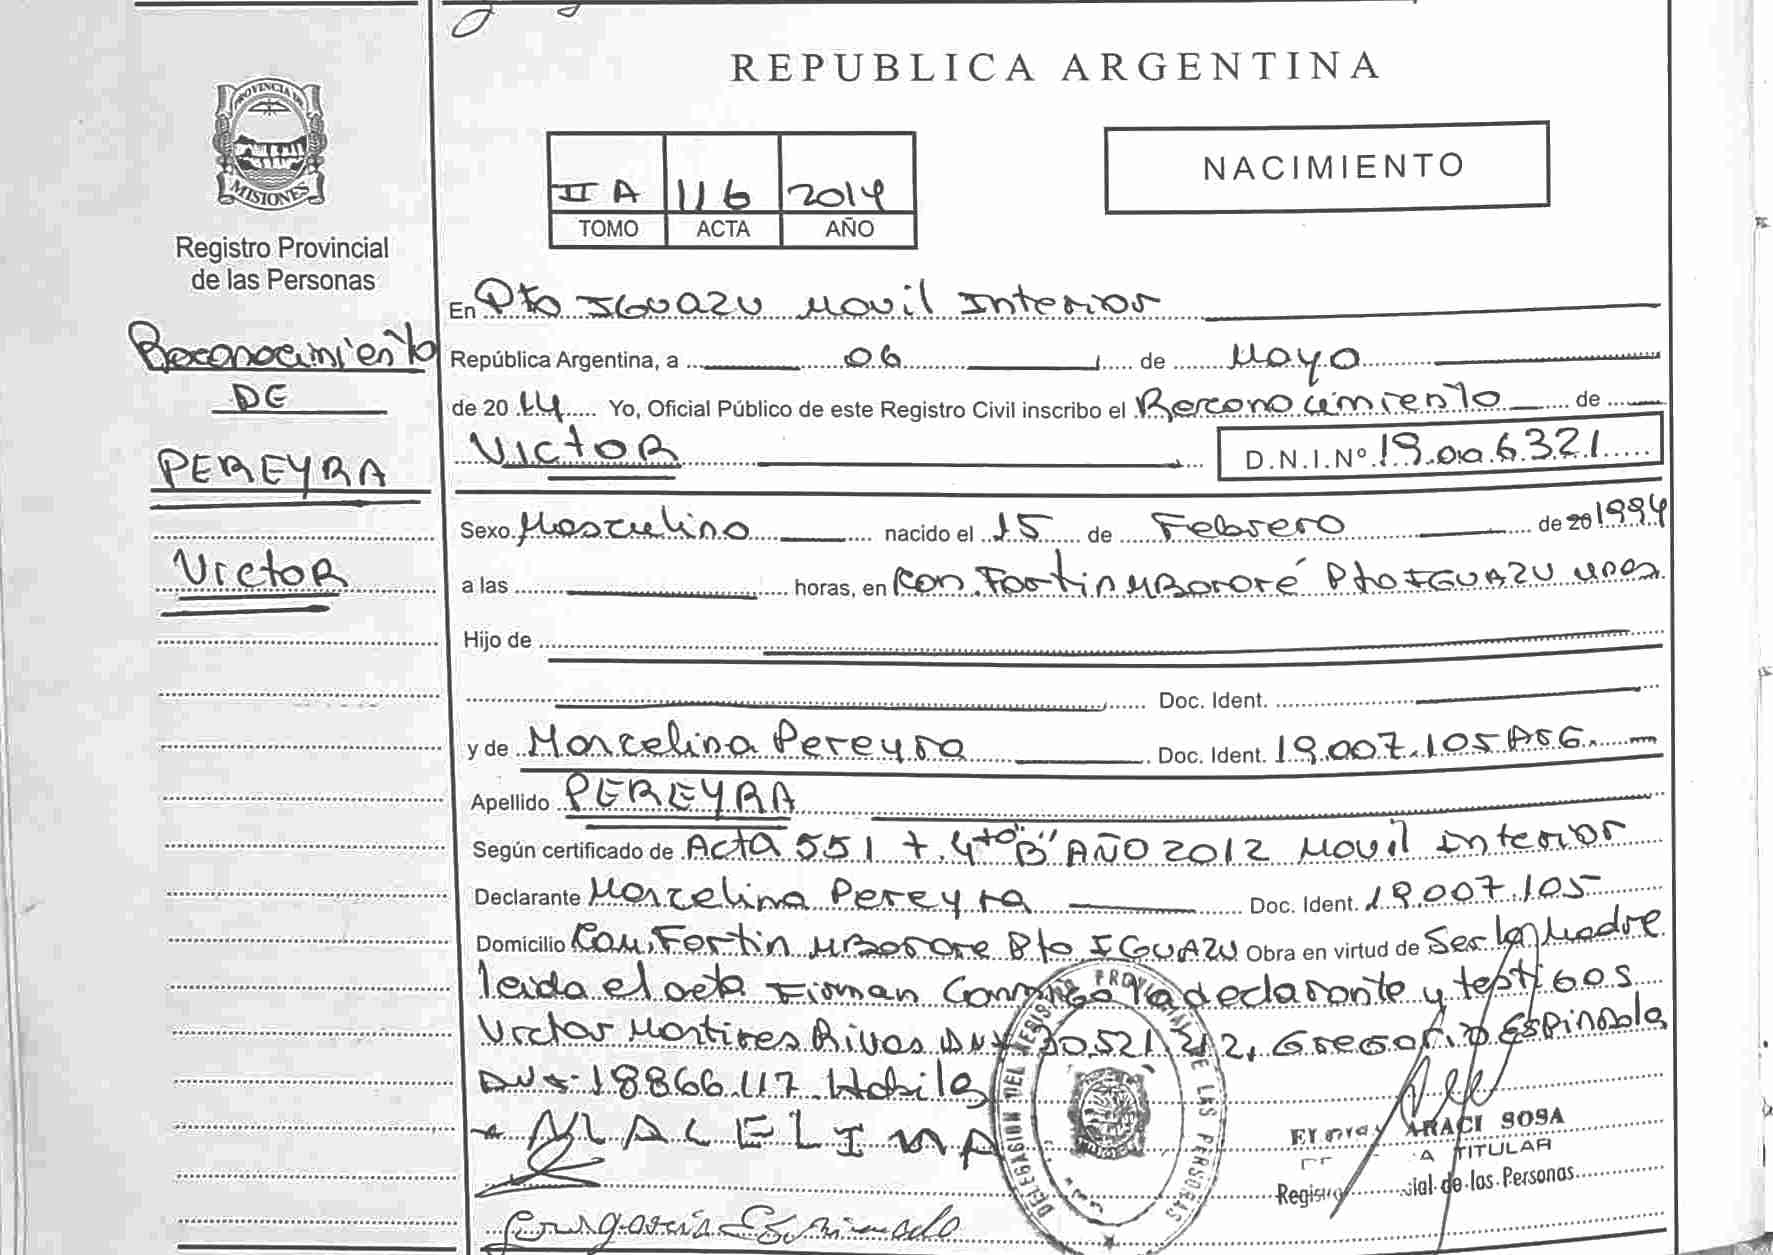 REPUBLICA ARGENTINA
PROVINCIA DE
MISIONES
Registro Provincial
de las Personas
II A 116 2014
TOMO ACTA AÑO
NACIMIENTO
Reconocimiento
DE
PEREYRA
Victor
En Pto IGUAZU Movil Interior
República Argentina, a 06 de Mayo
de 20 14 Yo, Oficial Público de este Registro Civil inscribo el Reconocimiento de
Victor D.N.I.Nº 19.006.321
Sexo Masculino nacido el 15 de Febrero de 20 1994
a las horas, en Com. Fortin MBororé Pto IGUAZU
Hijo de
Doc. Ident.
y de Marcelina Pereyra Doc. Ident. 19.007.105 ASG.
Apellido PEREYRA
Según certificado de Acta 551 T. 4to "B" AÑO 2012 Movil Interior
Declarante Marcelina Pereyra Doc. Ident. 19.007.105
Domicilio Com. Fortin MBorore Pto IGUAZU Obra en virtud de Ser la Madre
leida el acta Firman Conmigo la declarante y testigos
Victor Martires Rivas DNI 30.521.212, Gregorio Espindola
DNI 18.866.117 Habiles
MALELINA
DELEGACION DEL REGISTRO PROVINCIAL DE LAS PERSONAS
ARACI SOSA
TITULAR
de las Personas